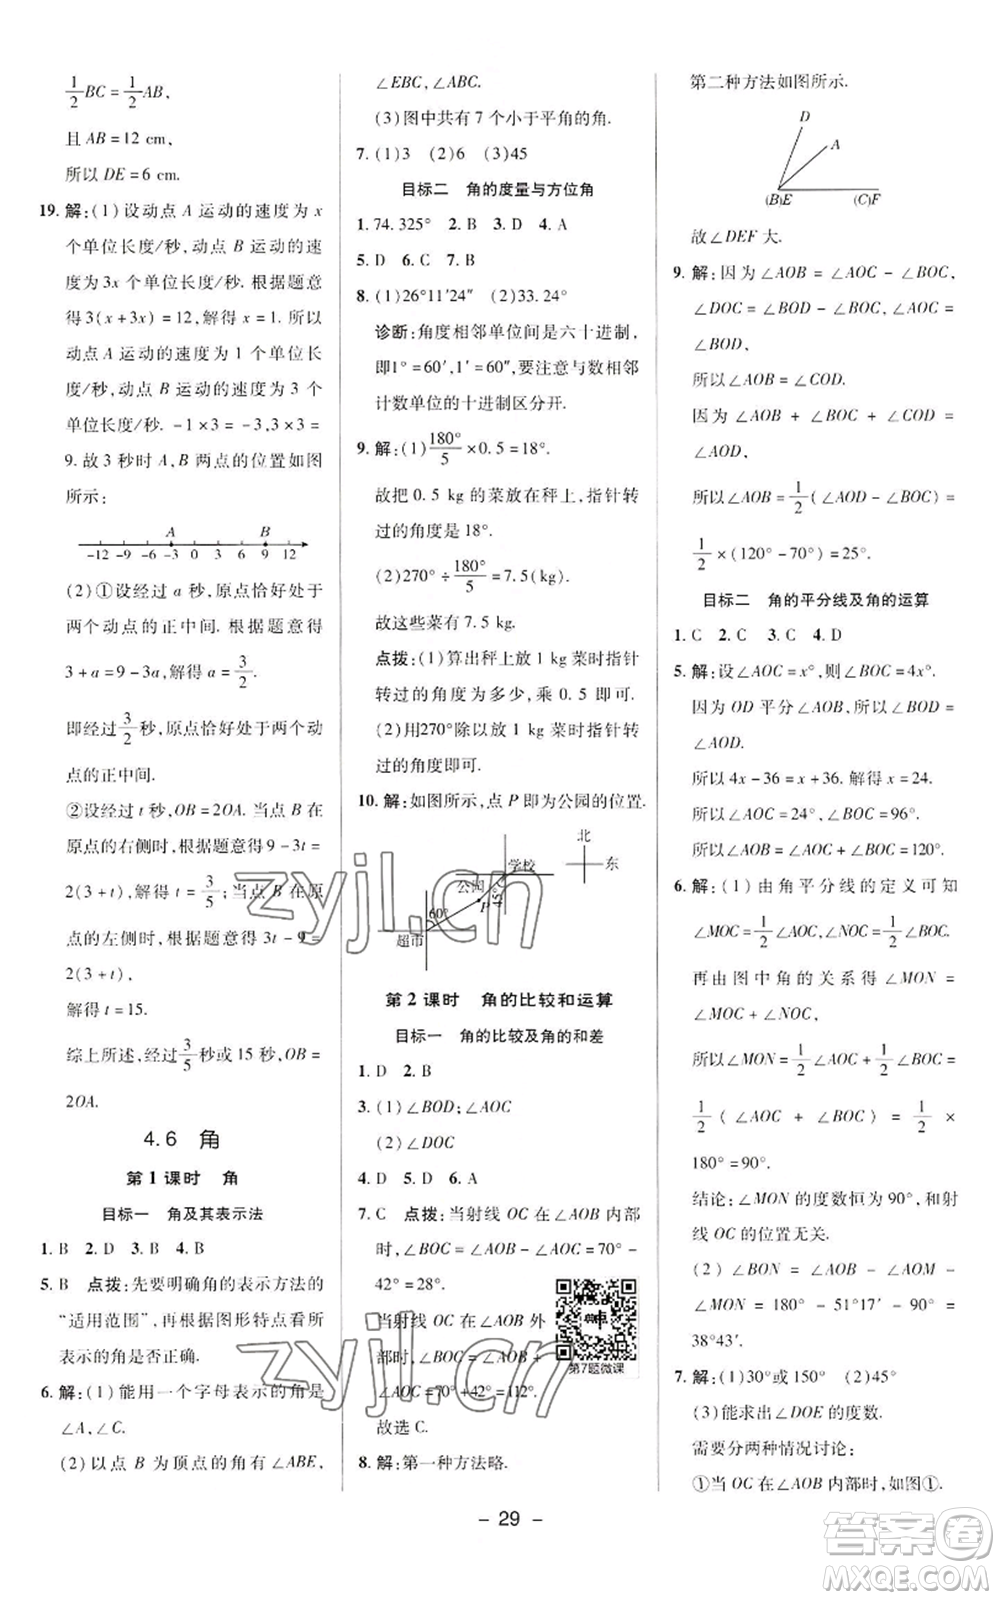 1/2 BC = 1/2 AB,
且 AB = 12 cm,
所以 DE = 6 cm.
19. 解:(1)设动点 A 运动的速度为 x
个单位长度/秒,动点 B 运动的速
度为 3x 个单位长度/秒. 根据题意
得 3(x + 3x) = 12, 解得 x = 1. 所以
动点 A 运动的速度为 1 个单位长
度/秒, 动点 B 运动的速度为 3 个
单位长度/秒. -1 × 3 = -3, 3 × 3 =
9. 故 3 秒时 A, B 两点的位置如图
所示:
A B
-12 -9 -6 -3 0 3 6 9 12
(2)①设经过 a 秒,原点恰好处于
两个动点的正中间. 根据题意得
3 + a = 9 - 3a, 解得 a = 3/2.
即经过 3/2 秒,原点恰好处于两个动
点的正中间.
②设经过 t 秒, OB = 2OA. 当点 B 在
原点的右侧时,根据题意得 9 - 3t =
2(3 + t), 解得 t = 3/5; 当点 B 在原
点的左侧时,根据题意得 3t - 9 =
2(3 + t),
解得 t = 15.
综上所述,经过 3/5 秒或 15 秒, OB =
2OA.
4.6 角
第 1 课时 角
目标一 角及其表示法
1. B 2. D 3. B 4. B
5. B 点拨:先要明确角的表示方法的
“适用范围”,再根据图形特点看所
表示的角是否正确.
6. 解:(1)能用一个字母表示的角是
∠A, ∠C.
(2)以点 B 为顶点的角有∠ABE,
∠EBC, ∠ABC.
(3)图中共有 7 个小于平角的角.
7. (1)3 (2)6 (3)45
目标二 角的度量与方位角
1. 74.325° 2. B 3. D 4. A
5. D 6. C 7. B
8. (1)26°11′24″ (2)33.24°
诊断:角度相邻单位间是六十进制,
即1° = 60′, 1′ = 60″, 要注意与数相邻
计数单位的十进制区分开.
9. 解:(1) 180°/5 × 0.5 = 18°.
故把 0.5 kg 的菜放在秤上,指针转
过的角度是 18°.
(2)270° ÷ 180°/5 = 7.5(kg).
故这些菜有 7.5 kg.
点拨:(1)算出秤上放 1 kg 菜时指针
转过的角度为多少,乘 0.5 即可.
(2)用270°除以放 1 kg 菜时指针转过
的角度即可.
10. 解:如图所示,点 P 即为公园的位置.
北
东
学校
公园
45°
P
60°
超市
第 2 课时 角的比较和运算
目标一 角的比较及角的和差
1. D 2. B
3. (1)∠BOD; ∠AOC
(2)∠DOC
4. D 5. D 6. A
7. C 点拨:当射线 OC 在∠AOB 内部
时, ∠BOC = ∠AOB - ∠AOC = 70° -
42° = 28°.
当射线 OC 在∠AOB 外
部时, ∠BOC = ∠AOB +
∠AOC = 70° + 42° = 112°.
故选 C.
第7题微课
8. 解:第一种方法略.
第二种方法如图所示.
D
A
(B)E (C)F
故∠DEF 大.
9. 解:因为∠AOB = ∠AOC - ∠BOC,
∠DOC = ∠BOD - ∠BOC, ∠AOC =
∠BOD,
所以∠AOB = ∠COD.
因为∠AOB + ∠BOC + ∠COD =
∠AOD,
所以∠AOB = 1/2(∠AOD - ∠BOC) =
1/2 × (120° - 70°) = 25°.
目标二 角的平分线及角的运算
1. C 2. C 3. C 4. D
5. 解:设∠AOC = x°, 则∠BOC = 4x°.
因为 OD 平分∠AOB, 所以∠BOD =
∠AOD.
所以 4x - 36 = x + 36. 解得 x = 24.
所以∠AOC = 24°, ∠BOC = 96°.
所以∠AOB = ∠AOC + ∠BOC = 120°.
6. 解:(1)由角平分线的定义可知
∠MOC = 1/2∠AOC, ∠NOC = 1/2∠BOC.
再由图中角的关系得∠MON =
∠MOC + ∠NOC,
所以∠MON = 1/2∠AOC + 1/2∠BOC =
1/2(∠AOC + ∠BOC) = 1/2 ×
180° = 90°.
结论:∠MON 的度数恒为 90°, 和射
线 OC 的位置无关.
(2)∠BON = ∠AOB - ∠AOM -
∠MON = 180° - 51°17′ - 90° =
38°43′.
7. 解:(1)30°或 150° (2)45°
(3)能求出∠DOE 的度数.
需要分两种情况讨论:
①当 OC 在∠AOB 内部时,如图①.
- 29 -
zyjl.cn
zyjl.cn
答案圈
MXQE.COM